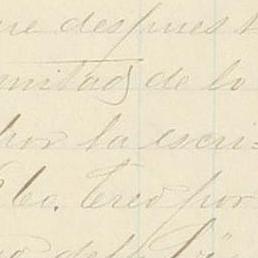 ue despues
mitad de lo
por la escri-
Co. Creo por